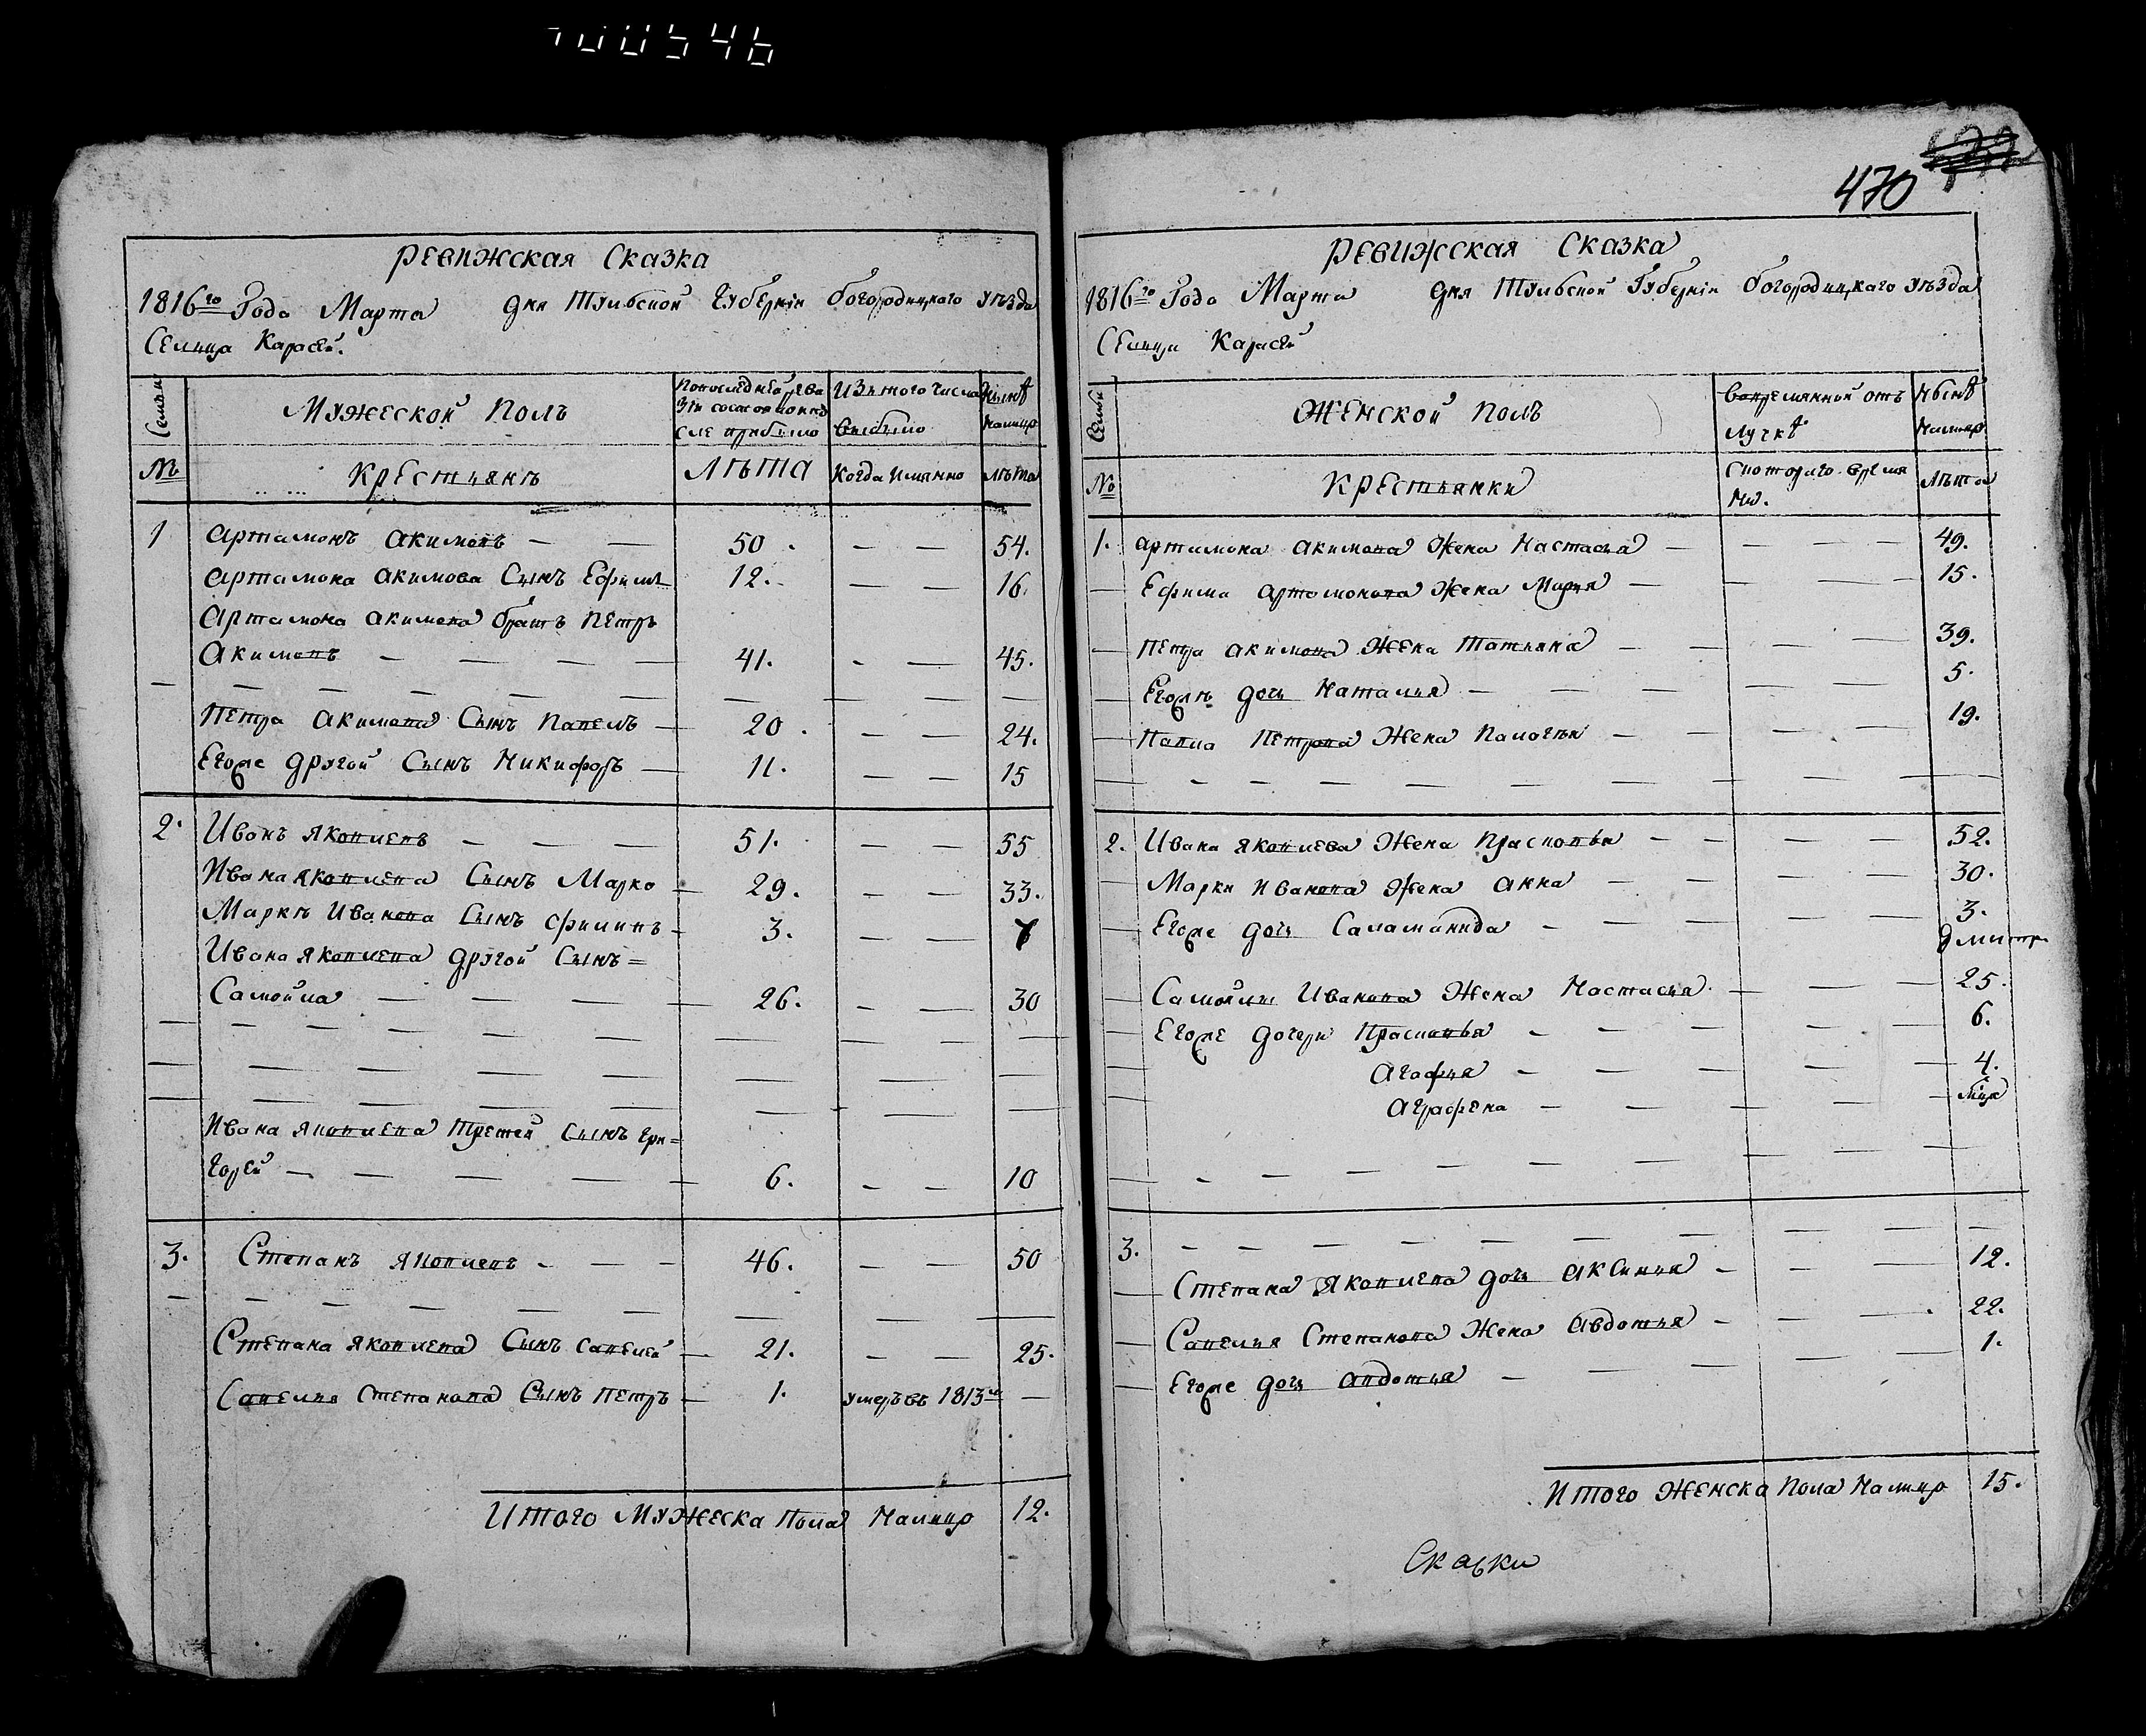 470
РЕВИЖСКАЯ СКАЗКА
1816го Года Марта дня Тульской Губернiи Богородицкаго уѣзда
Селица Карасей.
Семьи
Мужеской Полъ
Попоследней реви
зiи состояло и по
сле прибыло
Изътого числа
выбыло
Нынѣ
налицо
№
Крестьянъ
Лѣта
Когда имянно
лѣта
1 Артамонъ Акимовъ — — 50. — — 54.
Артамона Акимова Сынъ Ефимъ 12. — — 16.
Артамона Акимова братъ Петръ
Акимовъ — — — — 41. — — 45.
Петра Акимова Сынъ Павелъ — 20. — — 24.
Егоже другой Сынъ Никифоръ — 11. — — 15
2. Иванъ Яковлевъ — — — 51. — — 55
Ивана Яковлева Сынъ Марко — 29. — — 33.
Марки Иванова Сынъ Филипъ — 3. — —
Ивана Яковлева другой Сынъ =
Самойла — — — — 26. — — 30
Ивана Яковлева Третей Сынъ Гри=
горей — — — — — 6. — — 10
3. Степанъ Яковлевъ — — — 46. — — 50
Степана Яковлева Сынъ Савелей — 21. — — 25.
Савелья Степанова Сынъ Петръ — 1. умеръ въ 1813м —
Итого Мужеска Пола Налицо 12.
РЕВИЖСКАЯ СКАЗКА
1816го Года Марта дня Тульской Губернiи Богородицкаго уѣзда
Селица Карасей
Семьи
Женской Полъ
Вовремянной отъ
лучкѣ
Нынѣ
налицо
№
Крестьянки
Скотораго время
ни.
Лѣта
1. Артамона Акимова Жена Настасья — — — — 49.
Ефима Артамонова Жена Марья — — — — 15.
Петра Акимова Жена Татьяна — — — — 39.
Егожъ дочь Наталья — — — — 5.
Павла Петрова Жена Палагѣя — — — — 19.
2. Ивана Яковлева Жена Прасковья — — — — 52.
Марки Иванова Жена Анна — — — — 30.
Егоже дочь Саламанида — — — — 3.
Самойлы Иванова Жена Настасья — — — 25.
Егоже дочери Прасковья — — — — 6.
Агафья — — — — 4.
Аграфена — — — —
3.
Степана Яковлева дочь Аксинья — — — 12.
Савелья Степанова Жена Авдотья — — — 22.
Егоже дочь Авдотья — — — — 1.
Итого Женска Пола Налицо 15.
Сказки